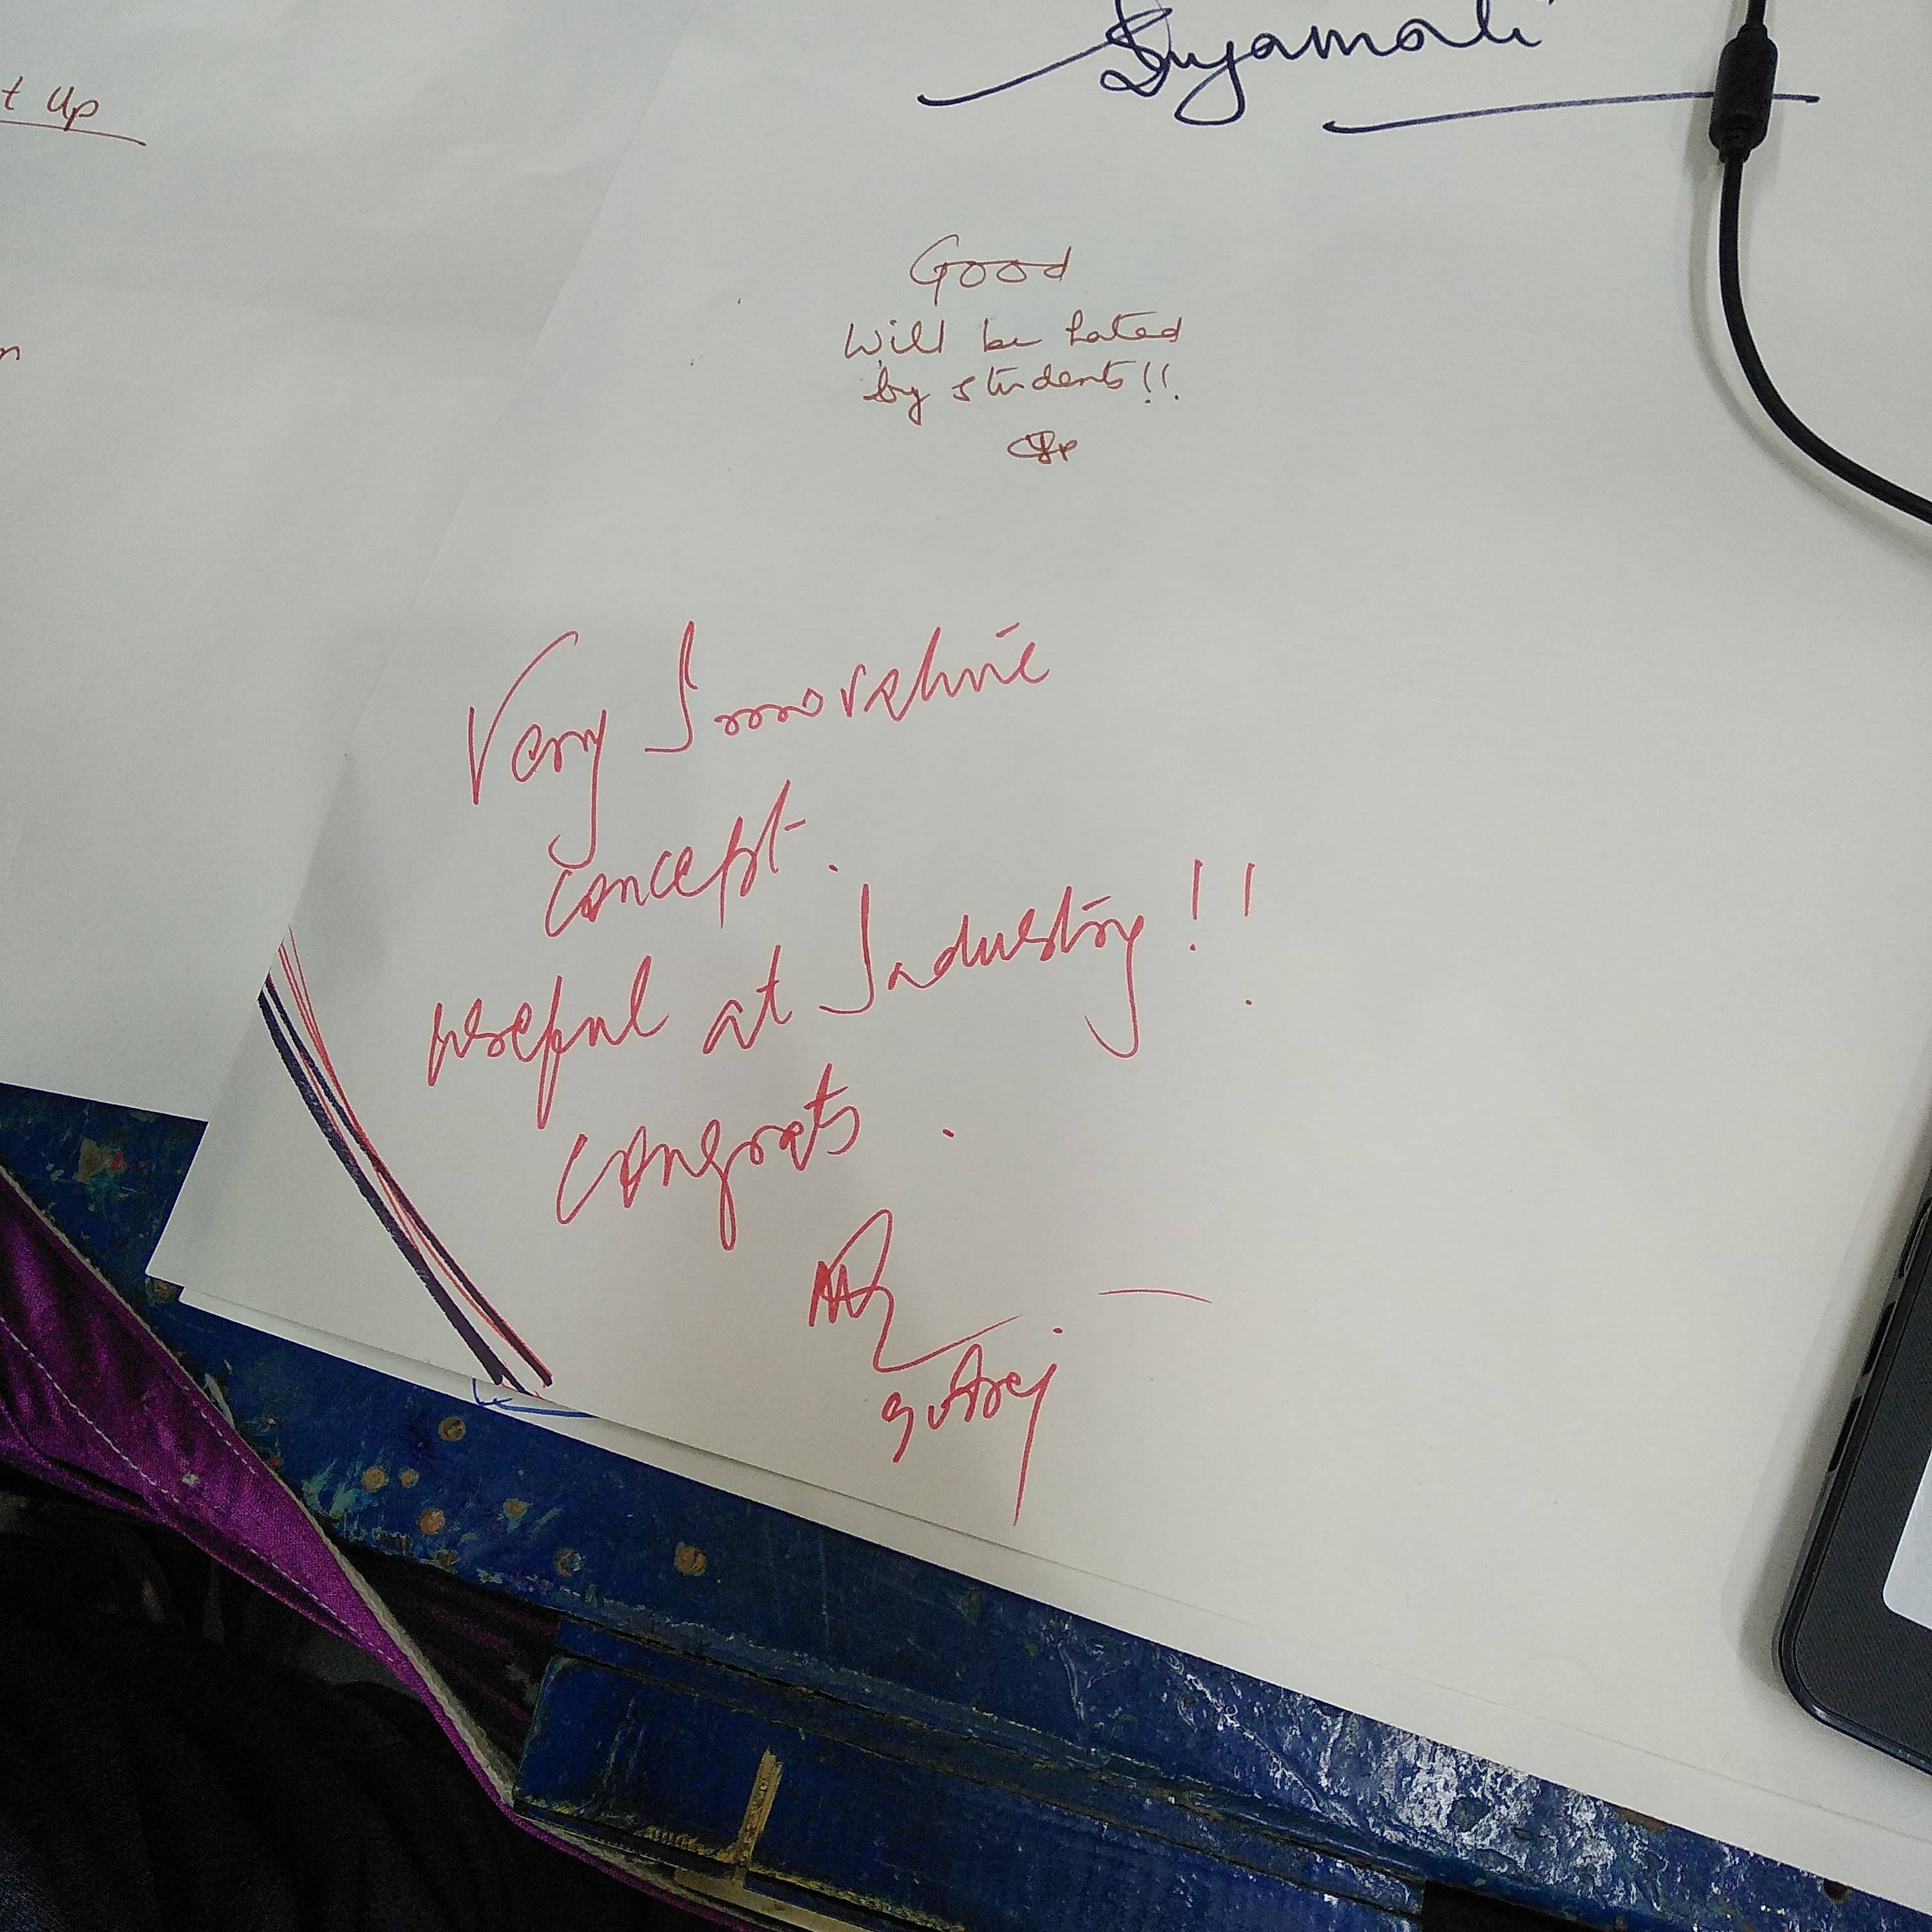 t Up
Suyamali
Good
Will be hated
by students!!
Very Innovative
concept.
useful at Industry!!
congrats.